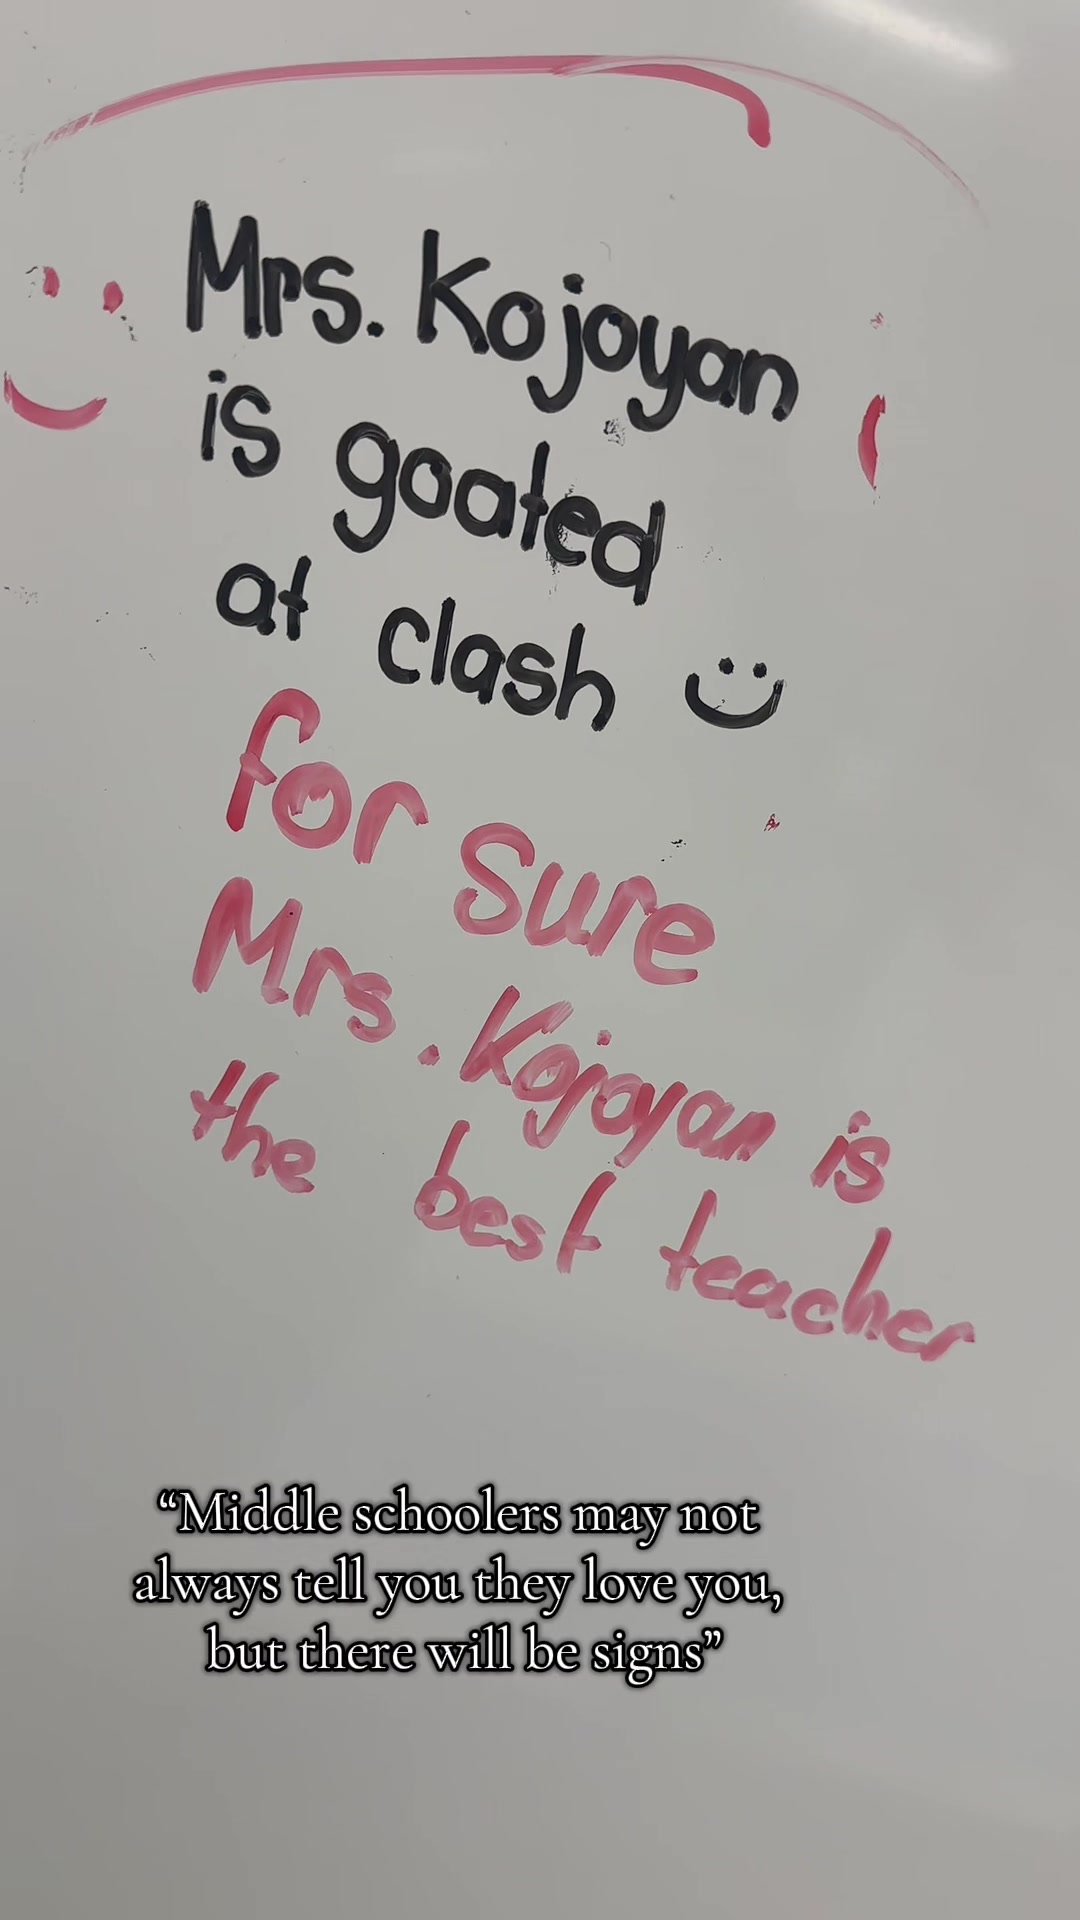 Mrs. Kojoyan
is goated
at clash
for sure
Mrs. Kojoyan is
the best teacher
“Middle schoolers may not
always tell you they love you,
but there will be signs”